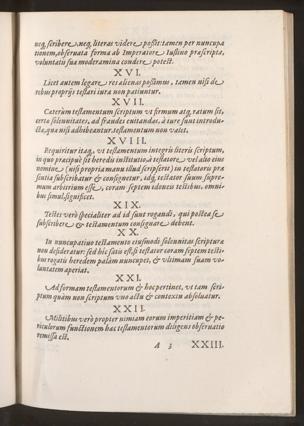 neq; scribere, neq; literas videre possit: tamen per nuncupa
tionem, observata forma ab Imperatore Iustino præscripta,
voluntatis suæ moderamina condere potest.
XVI.
Licet autem legare res alienas possimus, tamen nisi de
rebus proprijs testari iura non patiuntur.
XVII.
Cæterùm testamentum scriptum ut firmum atq; ratum sit,
certæ solennitates, ad fraudes euitandas, à iure sunt introdu-
ctæ, quæ nisi adhibeantur, testamentum non valet.
XVIII.
Requiritur itaq;, vt testamentum integris literis scriptum,
in quo præcipuè sit heredis institutio, à testatore vel alio eius
nomine, (nisi propria manu illud scripserit) in testatoris præ
sentia subscribatur & consignetur, idq; testator suum supre-
mum arbitrium esse, coram septem idoneis testibus, omni-
bus simul, significet.
XIX.
Testes verò specialiter ad id sunt rogandi, qui postea se
subscribere & testamentum consignare debent.
XX.
In nuncupatiuo testamento eiusmodi solennitas scriptura
non desideratur: sed hîc satis est, si testator coram septem testi-
bus rogatis heredem palàm nuncupet, & vltimam suam vo-
luntatem aperiat.
XXI.
Ad formam testamentorum & hoc pertinet, vt tam scri-
ptum quàm non scriptum vno actu & contextu absoluatur.
XXII.
Militibus verò propter nimiam eorum imperitiam & pe-
riculorum functionem hac testamentorum diligens obseruatio
remissa est.
A 3 XXIII.